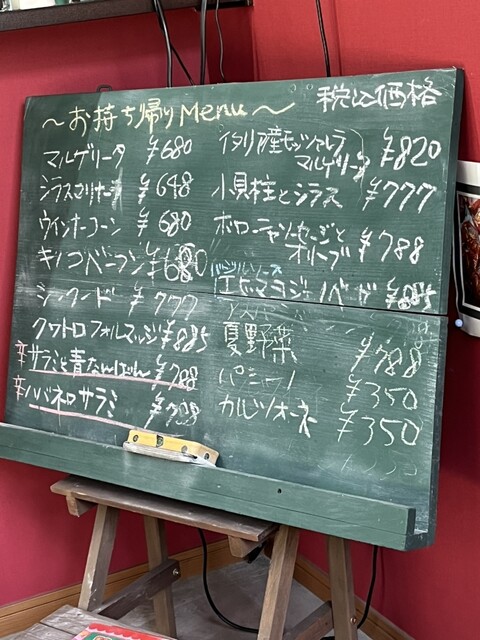 〜お持ち帰りMenu〜
税込価格
マルゲリータ ¥680
シラスマリナーラ ¥648
ウインナーコーン ¥680
キノコベーコン ¥680
シーフード ¥777
クワトロフォルマッジ ¥885
辛 サラミと青なんばん ¥788
辛 ハバネロサラミ ¥788
イタリア産モッツァレラ
マルゲリータ ¥820
小貝柱とシラス ¥777
ボローニャソーセージと
オリーブ ¥788
バジルソース
¥885
夏野菜 ¥788
¥350
カルツォーネ ¥350